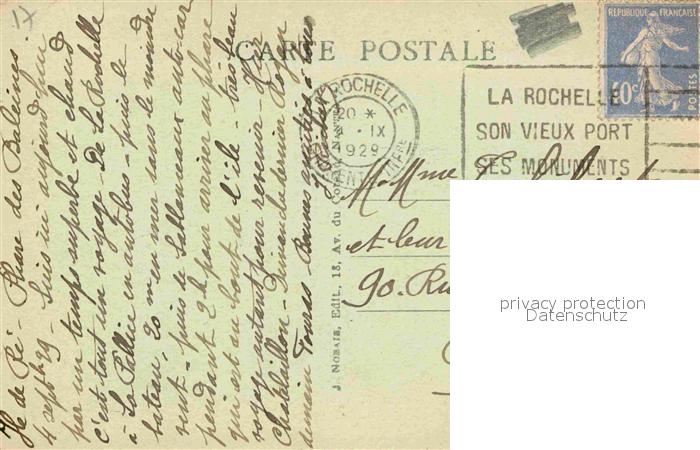 CARTE POSTALE
RÉPUBLIQUE FRANÇAISE
POSTES
LA ROCHELLE
20 *
IX
1929
LA ROCHELLE
SON VIEUX PORT
SES MONUMENTS
Ile de Ré - Phare des Baleines
4 sept 29 - Suis ici aujourd'hui
par un temps superbe et chaud
c'est tout un voyage - De La Rochelle
à La Pallice en autobus puis le
bateau, 20 m en mer sans le moindre
vent - puis de Sablanceaux auto-car
pendant 2h pour arriver au phare
qui est au bout de l'île - très beau
voyage autant pour revenir - Hier
Chatelaillon - Dimanche dernier Royan
demain Fouras - Bonnes amitiés à tous
J. NOBAIS, Edit., 18, Av. du
M. Mme
et leur
90. Ru
privacy protection
Datenschutz